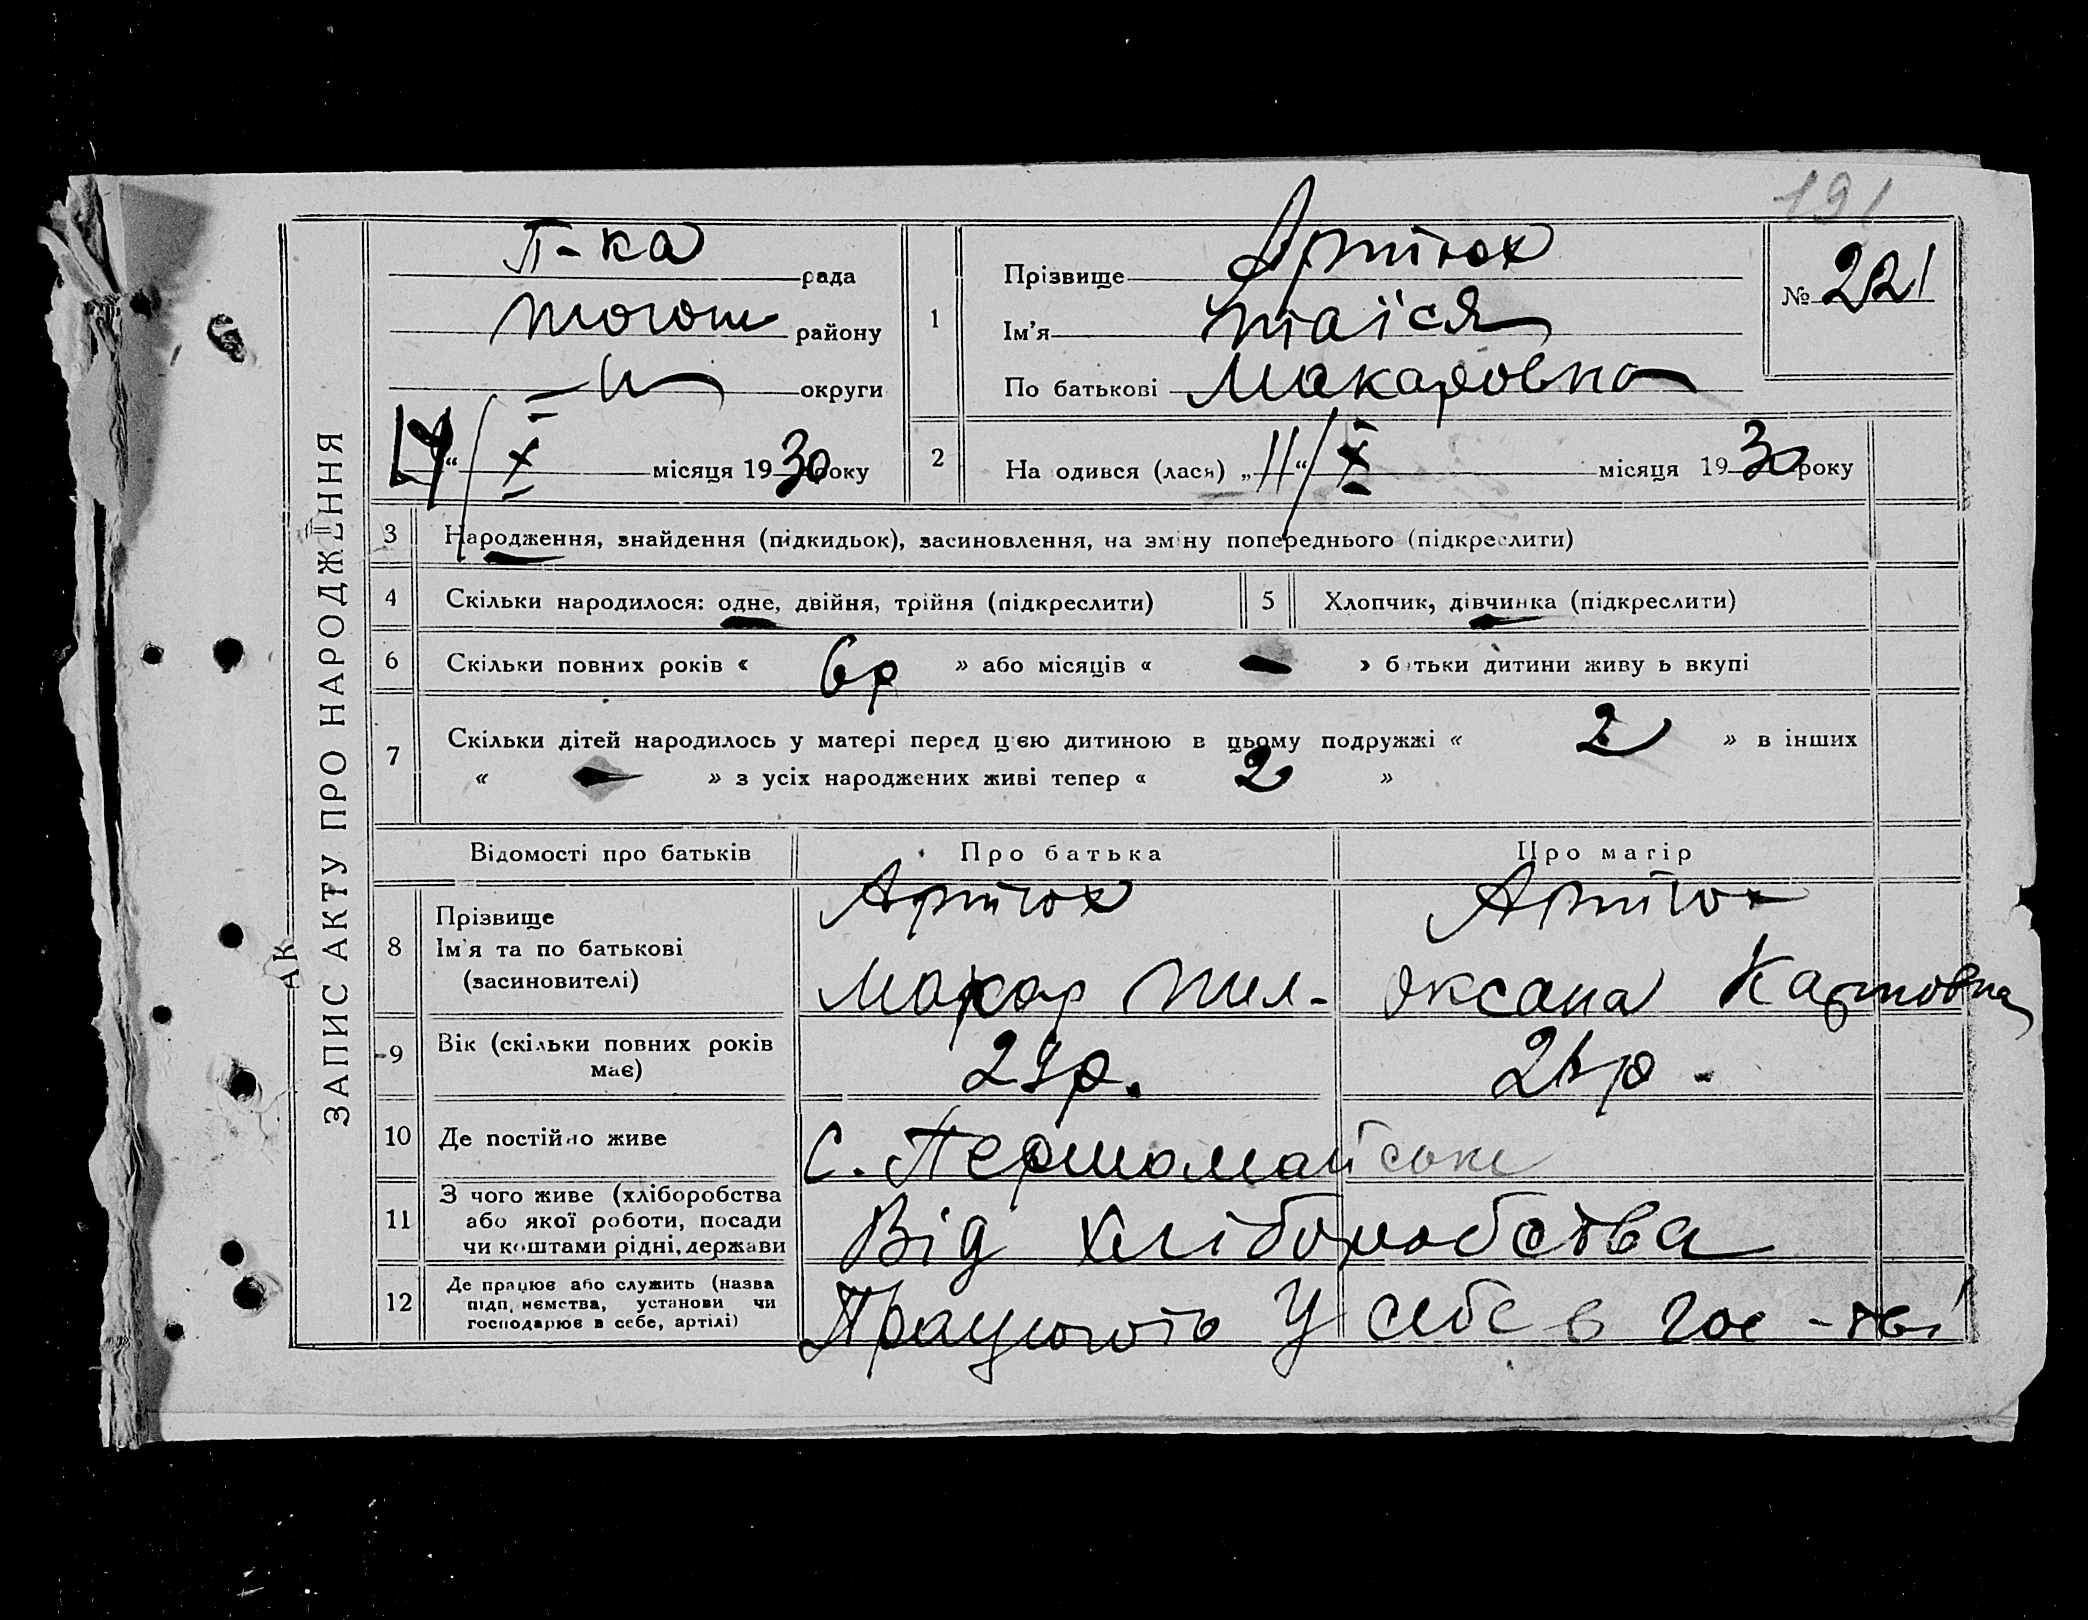 191
П-ка рада
району
округи
14 "/ X місяця 1930 року
1
Прізвище Артюх
Ім'я Таїся
По батькові Макаровна
№ 221
2
На одився (лася) „11"/ X місяця 1930 року
ЗАПИС АКТУ ПРО НАРОДЖЕННЯ
АК
3 Народження, знайдення (підкидьок), засиновлення, на зміну попереднього (підкреслити)
4 Скільки народилося: одне, двійня, трійня (підкреслити) 5 Хлопчик, дівчинка (підкреслити)
6 Скільки повних років « 6р » або місяців « — » батьки дитини живу ь вкупі
7 Скільки дітей народилось у матері перед цією дитиною в цьому подружжі « 2 » в інших
« — » з усіх народжених живі тепер « 2 »
Відомості про батьків Про батька Про матір
8 Прізвище
Ім'я та по батькові
(засиновителі)
Артюх
Макар Пил-
Артюх
Оксана Карповна
9 Вік (скільки повних років
має)
29р. р.
10 Де постійно живе с. Першомайське
11 З чого живе (хліборобства
або якої роботи, посади
чи коштами рідні, держави
Від хліборобства
12 Де працює або служить (назва
підп,иємства, установи чи
господарює в себе, артілі)
Працюють У себе в гос-тві